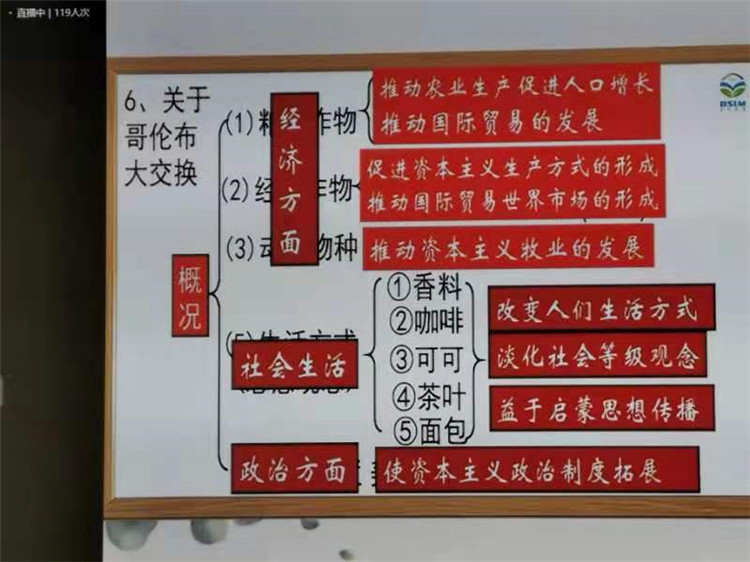 直播中 | 119人次
BSLM
6、关于
哥伦布
大交换
概况
经济方面
(1)粮 作物
推动农业生产促进人口增长
推动国际贸易的发展
(2)经 作物
促进资本主义生产方式的形成
推动国际贸易世界市场的形成
(3)动 物种
推动资本主义牧业的发展
社会生活
①香料
②咖啡
③可可
④茶叶
⑤面包
改变人们生活方式
淡化社会等级观念
益于启蒙思想传播
政治方面
使资本主义政治制度拓展